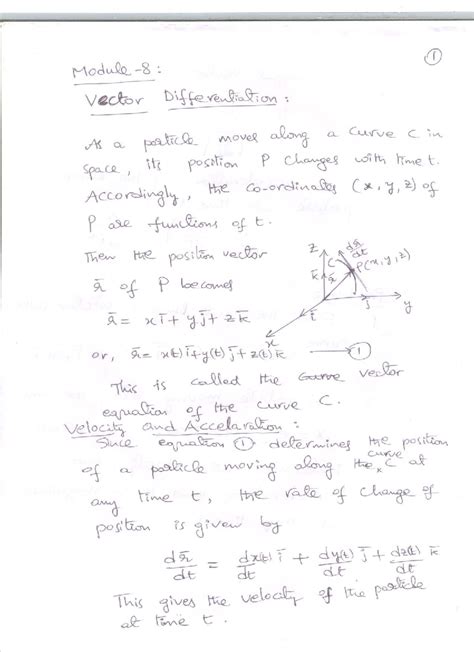 ①
Module-8:
Vector Differentiation:
As a particle moves along a curve C in
space, its position P changes with time t.
Accordingly, the co-ordinates (x, y, z) of
P are functions of t.
Then the position vector
r̄ of P becomes
z C dr̄/dt
P(x, y, z)
k̄ r̄
ī j̄ y
x
r̄ = x ī + y j̄ + z k̄
or, r̄ = x(t) ī + y(t) j̄ + z(t) k̄ → ①
This is called the vector
equation of the curve C.
Velocity and Accelaration:
Since equation ① determines the position
of a particle moving along the curve C at
any time t, the rate of change of
position is given by
dr̄/dt = dx(t)/dt ī + dy(t)/dt j̄ + dz(t)/dt k̄
This gives the velocity of the particle
at time t.